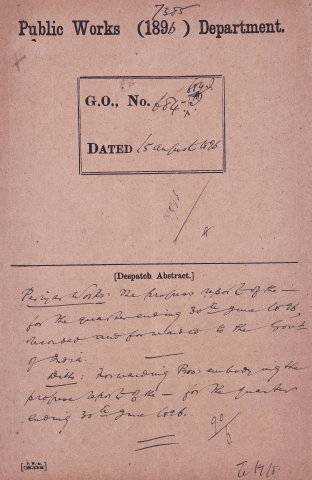 7385
Public Works (1896) Department.
G.O., No. 684-
DATED 15 August 1896
[Despatch Abstract.]
Periyar Works: The progress report of the —
for the quarter ending 30th June 1896,
recorded and forwarded to the Govt
of India.
Ditto: Forwarding Pros: embodying the
progress report of the — for the quarter
ending 30th June 1896.